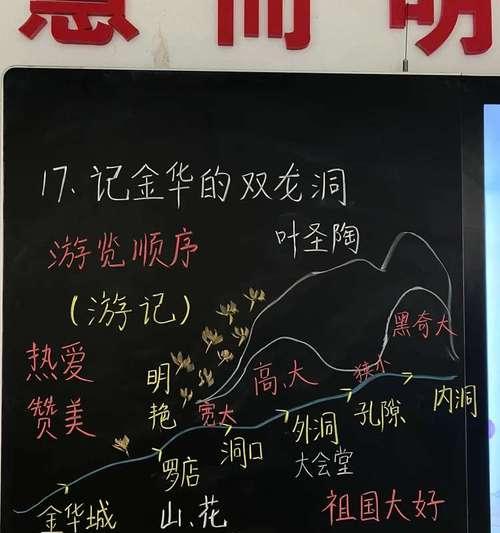 慧而明
17、记金华的双龙洞
叶圣陶
游览顺序
(游记)
热爱
赞美
明艳
宽大
高、大
狭小
黑奇大
金华城
罗店
山、花
洞口
外洞
大会堂
孔隙
内洞
祖国大好